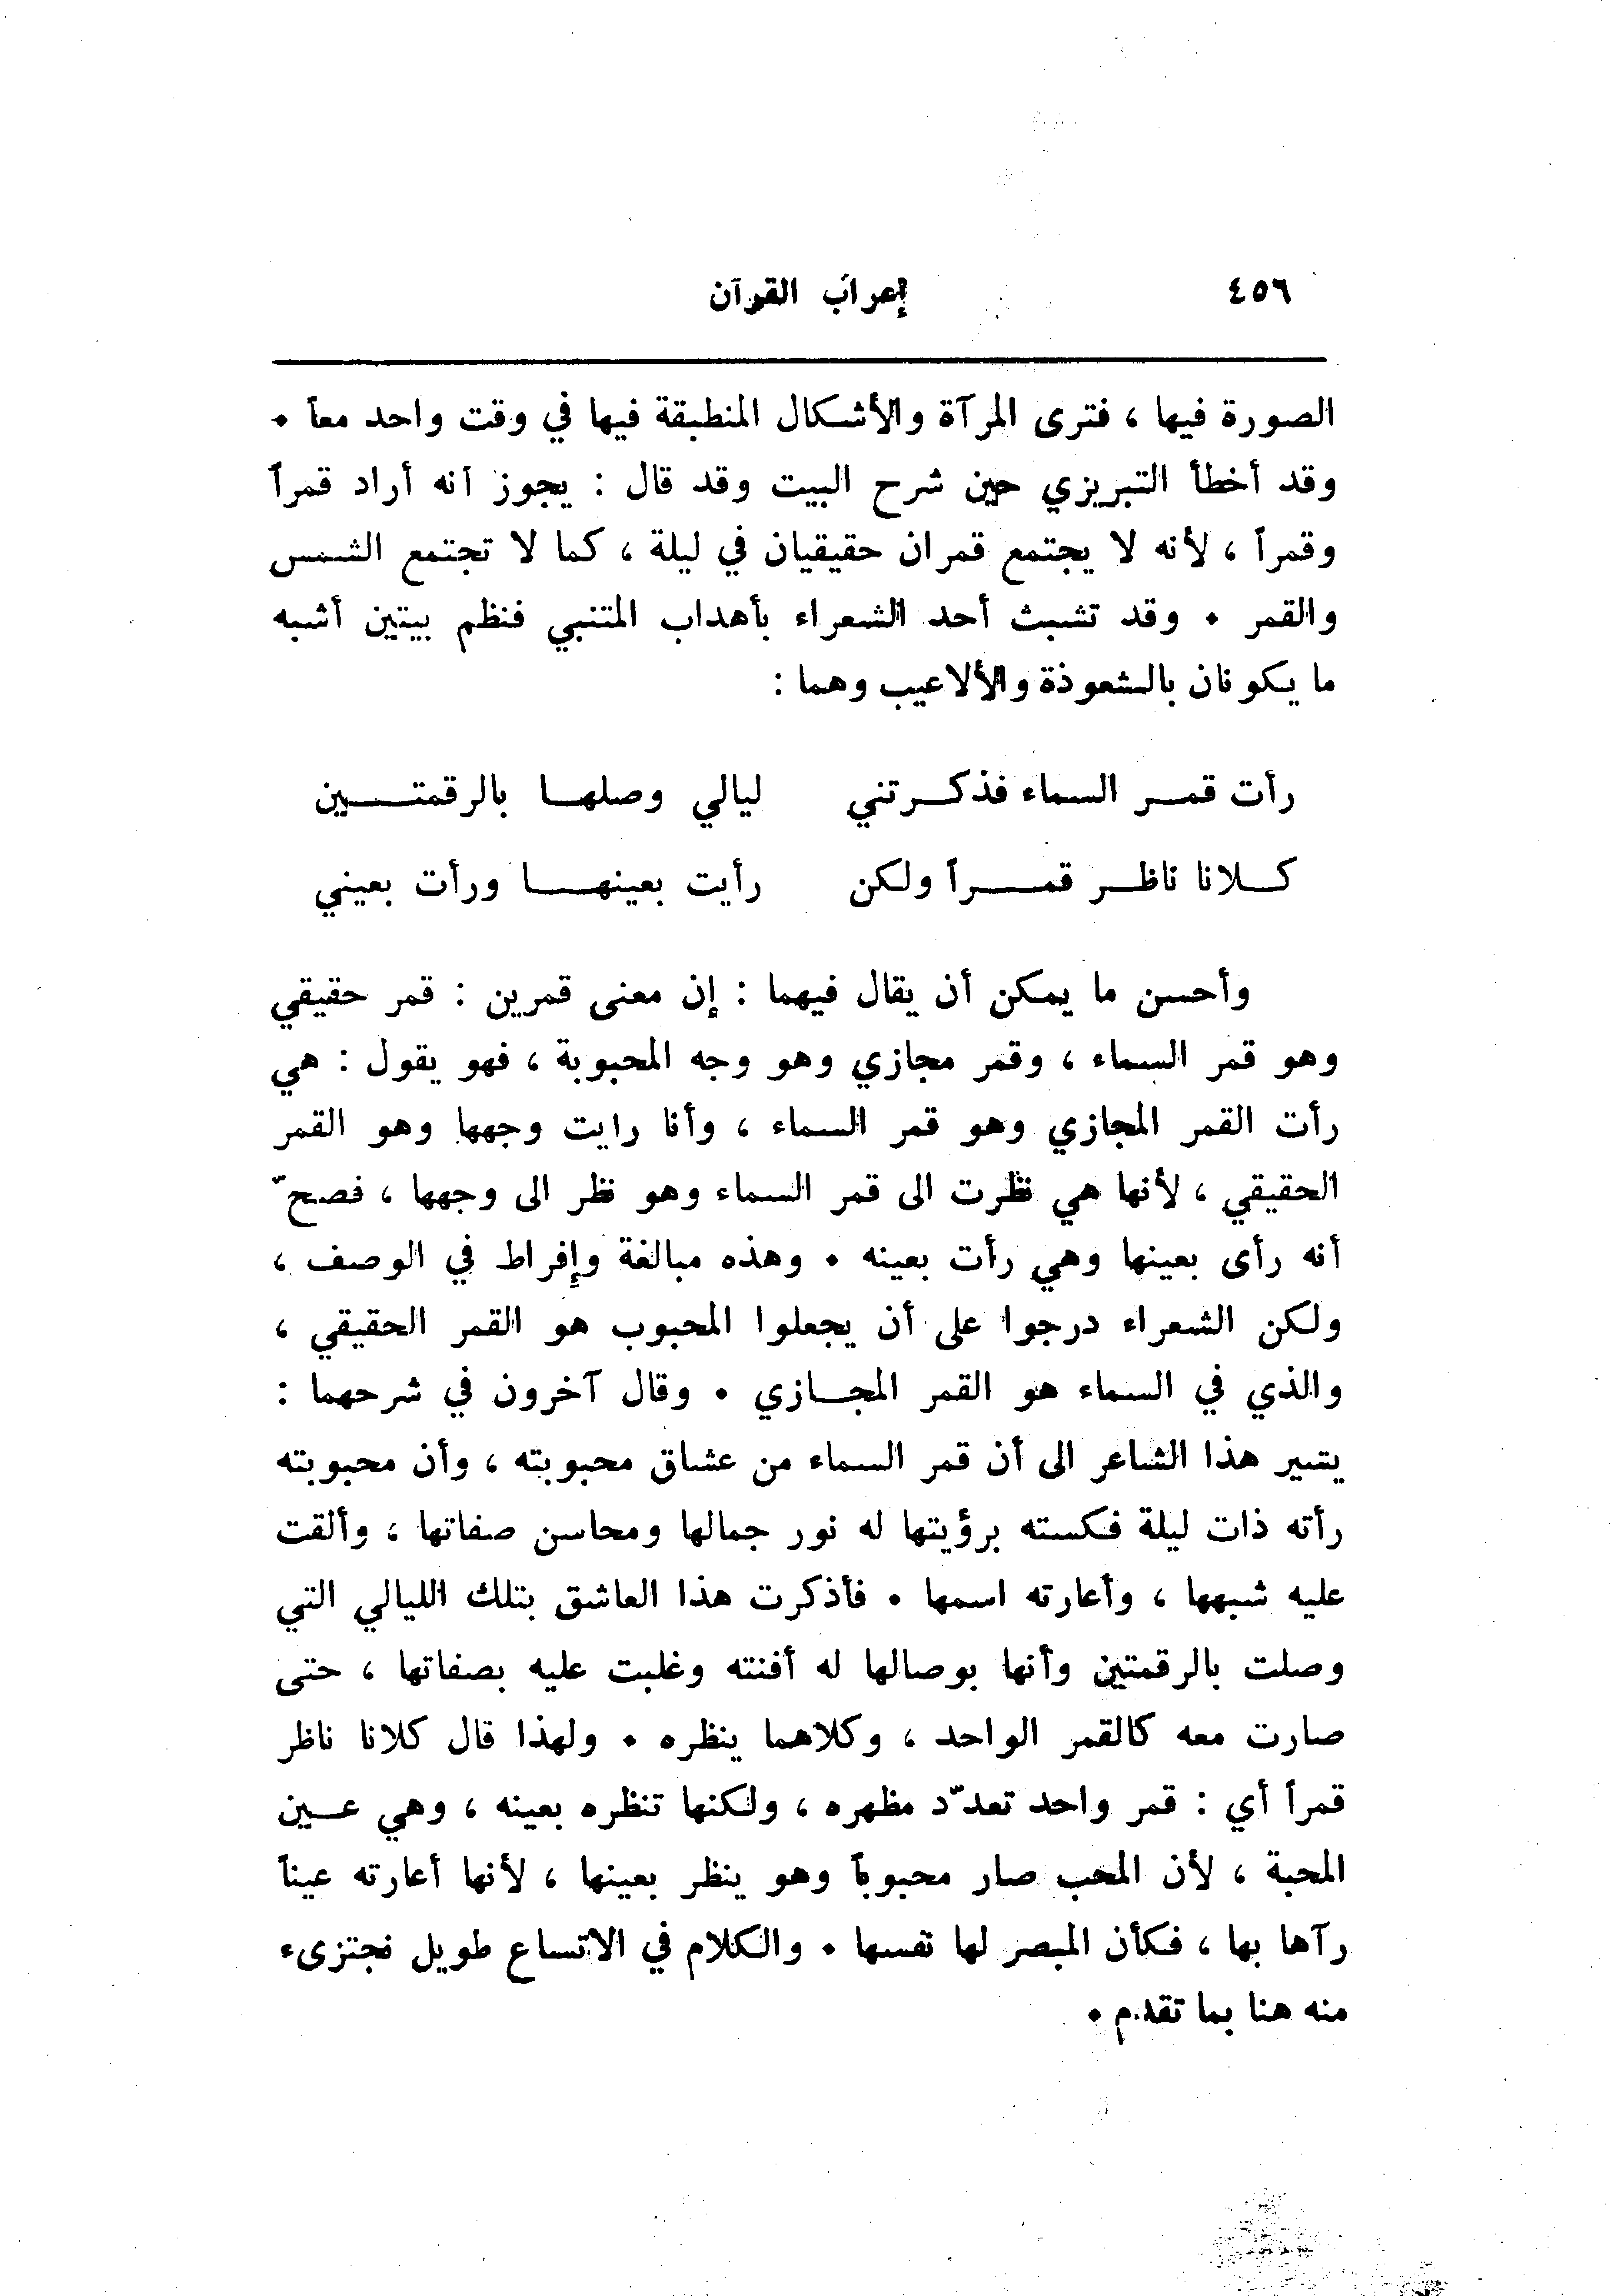 ٤٥٦ إعراب القرآن
الصورة فيها ، فترى المرآة والأشكال المنطبقة فيها في وقت واحد معاً .
وقد أخطأ التبريزي حين شرح البيت وقد قال : يجوز أنه أراد قمراً
وقمراً ، لأنه لا يجتمع قمران حقيقيان في ليلة ، كما لا تجتمع الشمس
والقمر . وقد تشبث أحد الشعراء بأهداب المتنبي فنظم بيتين أشبه
ما يكونان بالشعوذة والألاعيب وهما :
رأت قمر السماء فذكرتني ليالي وصلها بالرقمتين
كلانا ناظر قمراً ولكن رأيت بعينها ورأت بعيني
وأحسن ما يمكن أن يقال فيهما : إن معنى قمرين : قمر حقيقي
وهو قمر السماء ، وقمر مجازي وهو وجه المحبوبة ، فهو يقول : هي
رأت القمر المجازي وهو قمر السماء ، وأنا رايت وجهها وهو القمر
الحقيقي ، لأنها هي نظرت الى قمر السماء وهو نظر الى وجهها ، فصحّ
أنه رأى بعينها وهي رأت بعينه . وهذه مبالغة وإفراط في الوصف ،
ولكن الشعراء درجوا على أن يجعلوا المحبوب هو القمر الحقيقي ،
والذي في السماء هو القمر المجازي . وقال آخرون في شرحهما :
يشير هذا الشاعر الى أن قمر السماء من عشاق محبوبته ، وأن محبوبته
رأته ذات ليلة فكسته برؤيتها له نور جمالها ومحاسن صفاتها ، وألقت
عليه شبهها ، وأعارته اسمها . فأذكرت هذا العاشق بتلك الليالي التي
وصلت بالرقمتين وأنها بوصالها له أفنته وغلبت عليه بصفاتها ، حتى
صارت معه كالقمر الواحد ، وكلاهما ينظره . ولهذا قال كلانا ناظر
قمراً أي : قمر واحد تعدّد مظهره ، ولكنها تنظره بعينه ، وهي عين
المحبة ، لأن المحب صار محبوباً وهو ينظر بعينها ، لأنها أعارته عيناً
رآها بها ، فكأن المبصر لها نفسها . والكلام في الاتساع طويل نجتزىء
منه هنا بما تقدم .